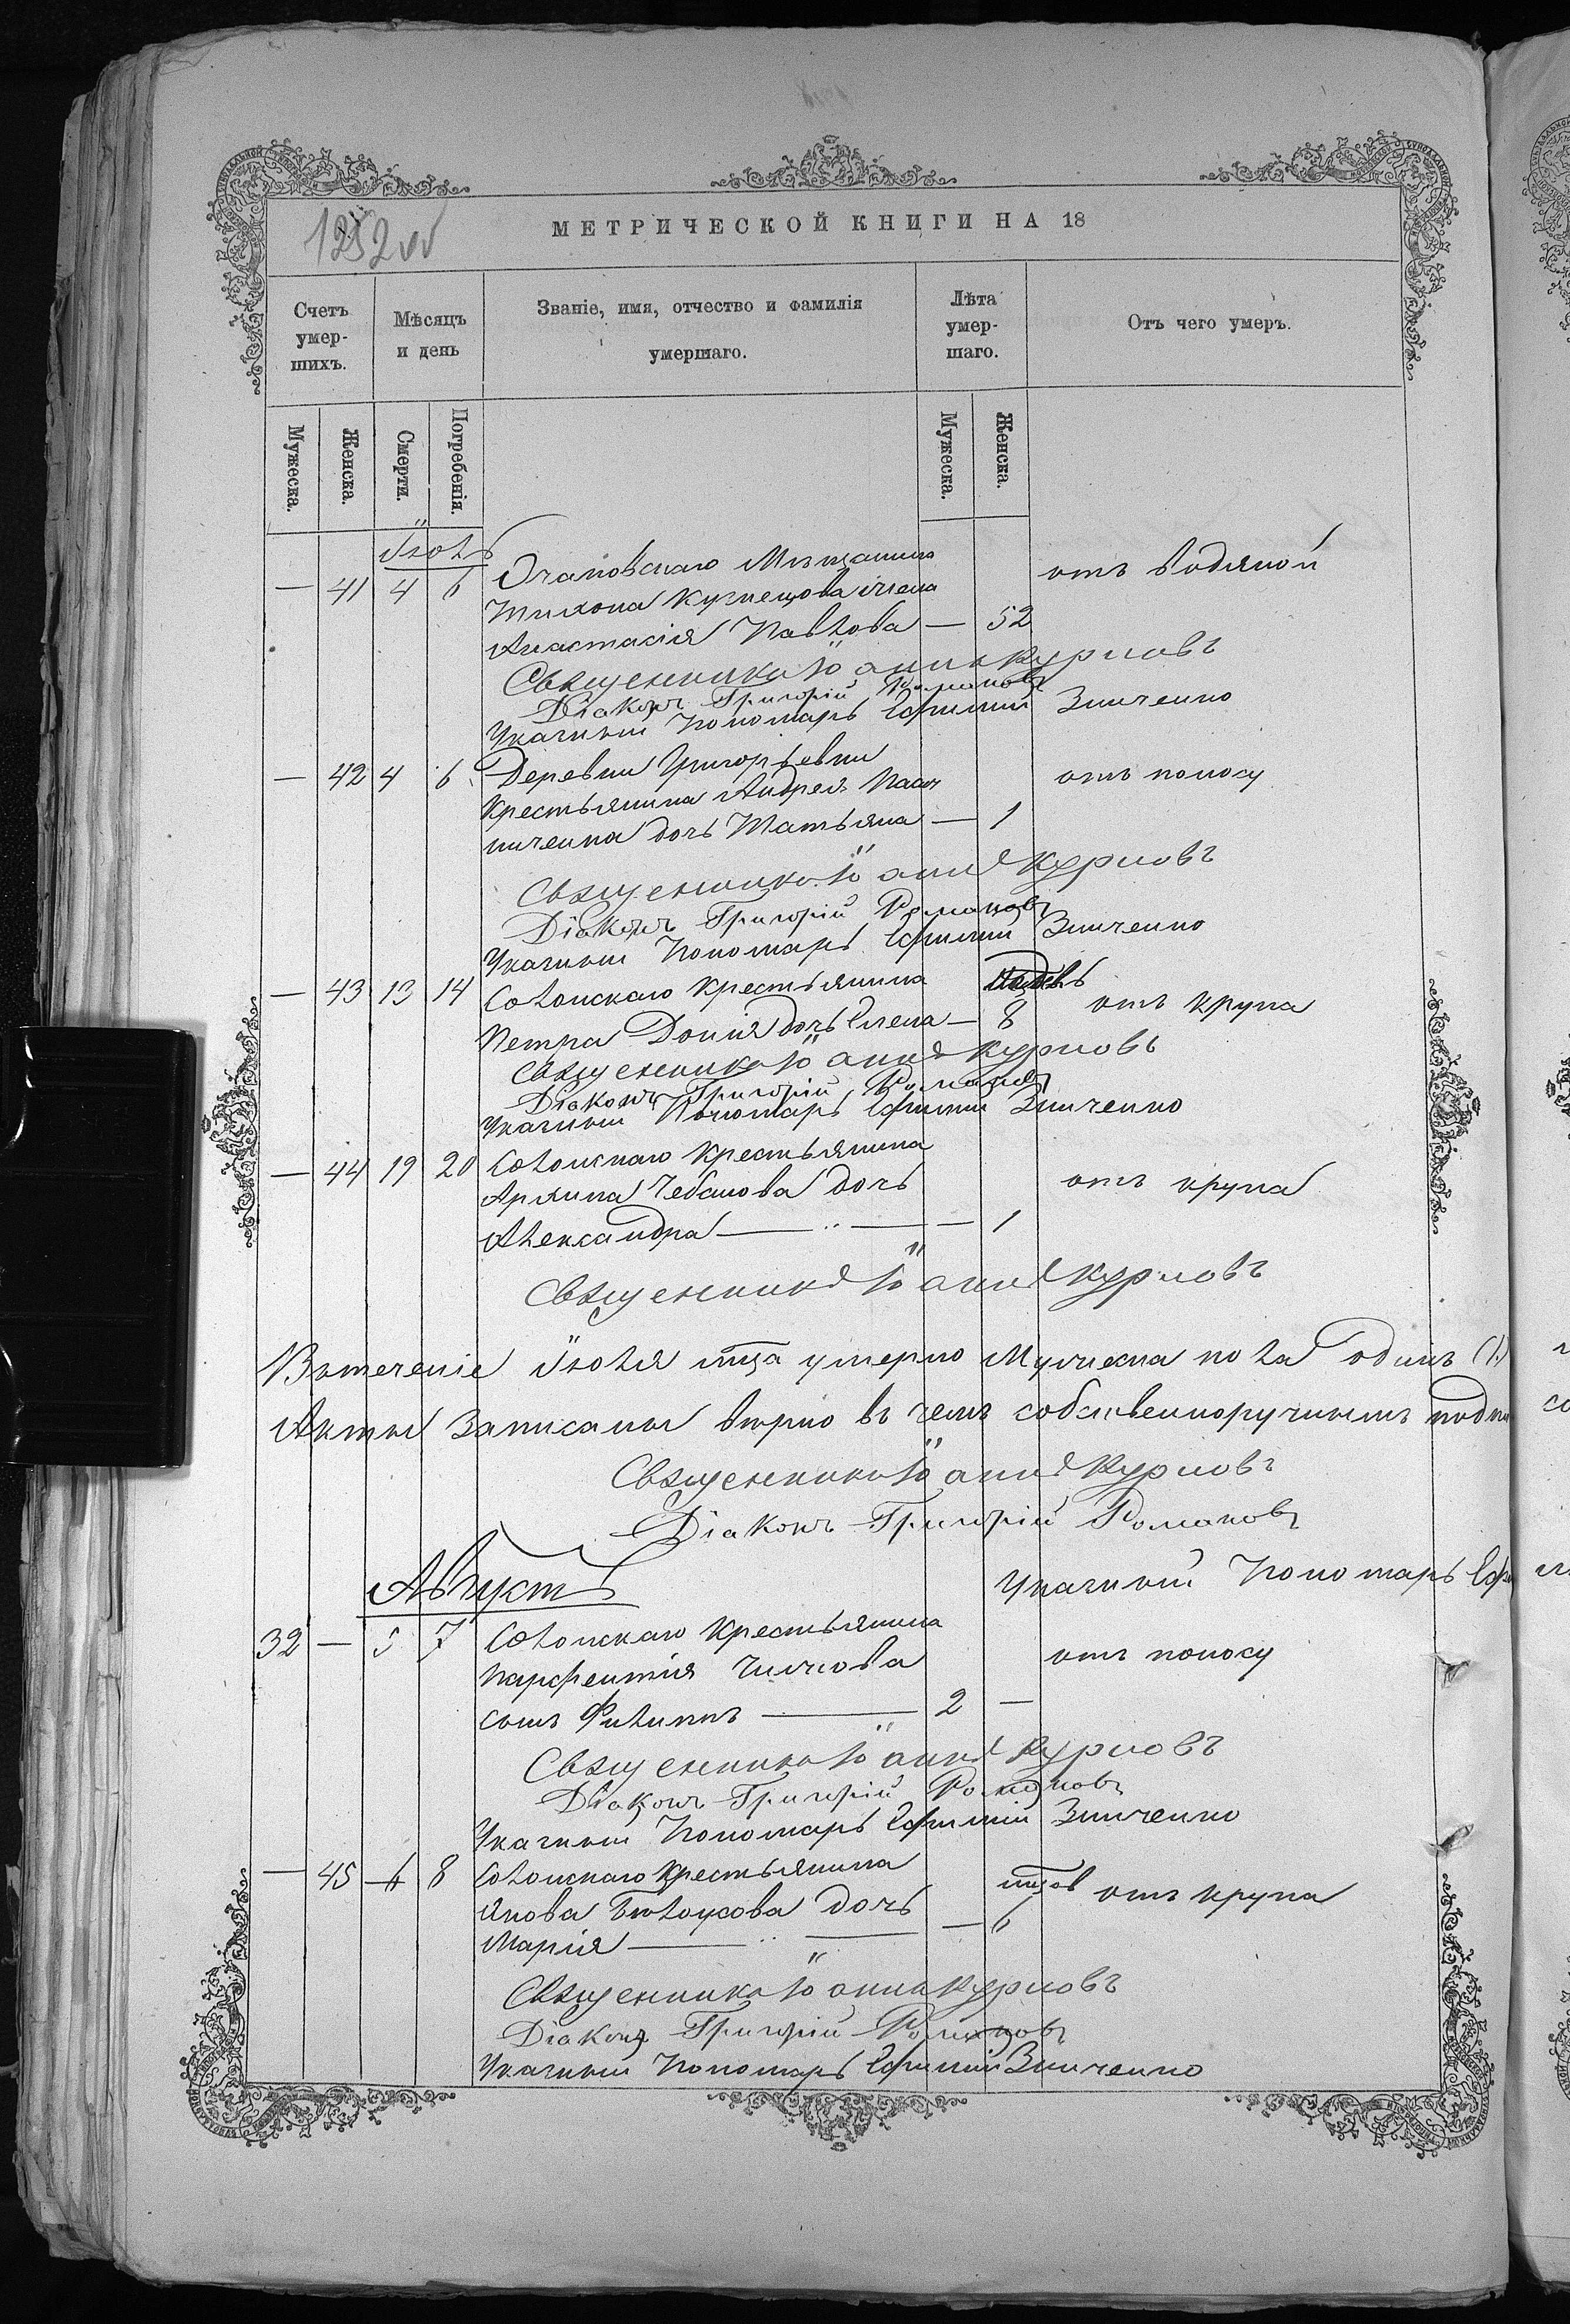 1252 об
МЕТРИЧЕСКОЙ КНИГИ НА 18
Счетъ умер-шихъ.
Мѣсяцъ и день
Званіе, имя, отчество и фамилія умершаго.
Лѣта умер-шаго.
Отъ чего умеръ.
Мужеска.
Женска.
Смерти.
Погребенія.
Мужеска.
Женска.
Іюль
Очаковскаго Мѣщанина
— 41 4 6 отъ водяной
Тихона Кузнецова жена
Анастасія Павлова — 52
Священникъ Іоаннъ Курловъ
Діаконъ Григорій Романовъ
Указный Пономарь Ефимій Зинченко
— 42 4 6 Деревни Григорьевки
Крестьянина Андрея отъ поносу
дочь Татьяна — 1
Священникъ Іоаннъ Курловъ
Діаконъ Григорій Романовъ
Указный Пономарь Ефимій Зинченко
— 43 13 14 Солонскаго Крестьянина
отъ крупа
Петра Донія дочь Елена — 8
Священникъ Іоаннъ Курловъ
Діаконъ Григорій Романовъ
Указный Пономарь Ефимій Зинченко
— 44 19 20 Солонскаго Крестьянина
Архипа Чебанова дочь отъ крупа
Александра — 1
Священникъ Іоаннъ Курловъ
Втеченіе Іюля мца умерло Мужеска пола одинъ (1.)
Акты записаны вѣрно въ чемъ собственноручнымъ подпи
Священникъ Іоаннъ Курловъ
Діаконъ Григорій Романовъ
Указный Пономарь Ефи
Августъ
32 — 5 7 Солонскаго Крестьянина
Парфентія отъ поносу
сынъ Филиппъ — 2 —
Священникъ Іоаннъ Курловъ
Діаконъ Григорій Романовъ
Указный Пономарь Ефимій Зинченко
— 45 6 8 Солонскаго Крестьянина
мцов отъ крупа
Якова Бѣлоусова дочь
Марія — 6
Священникъ Іоаннъ Курловъ
Діаконъ Григорій Романовъ
Указный Пономарь Ефимій Зинченко